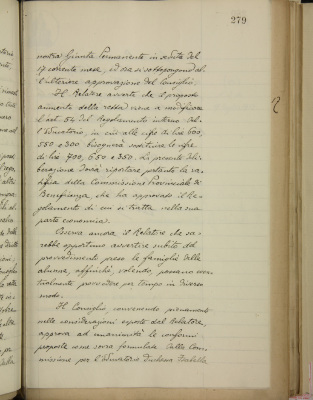 279
nostra Giunta Permanente in seduta del
17 corrente mese, ed ora si sottopongono al-
l'ulteriore approvazione del Consiglio.
Il Relatore avverte che il proposto
aumento della retta viene a modificare
l'art. 54 del Regolamento interno del-
l'Educatorio, in cui alle cifre di lire 600,
550 e 300 bisognerà sostituire le cifre
di lire 700, 650 e 350. La presente deli-
berazione dovrà riportare pertanto la ra-
tifica della Commissione Provinciale di
Beneficenza, che ha approvato il Re-
golamento di cui si tratta nella sua
parte economica.
Osserva ancora il Relatore che sa-
rebbe opportuno avvertire subito del
provvedimento preso le famiglie delle
alunne, affinché, volendo, possano even-
tualmente provvedere per tempo in diverso
modo.
Il Consiglio, convenendo pienamente
nelle considerazioni esposte dal Relatore,
approva ad unanimità le conformi
proposte come sovra formulate dalla Com-
missione per l'Educatorio Duchessa Isabella